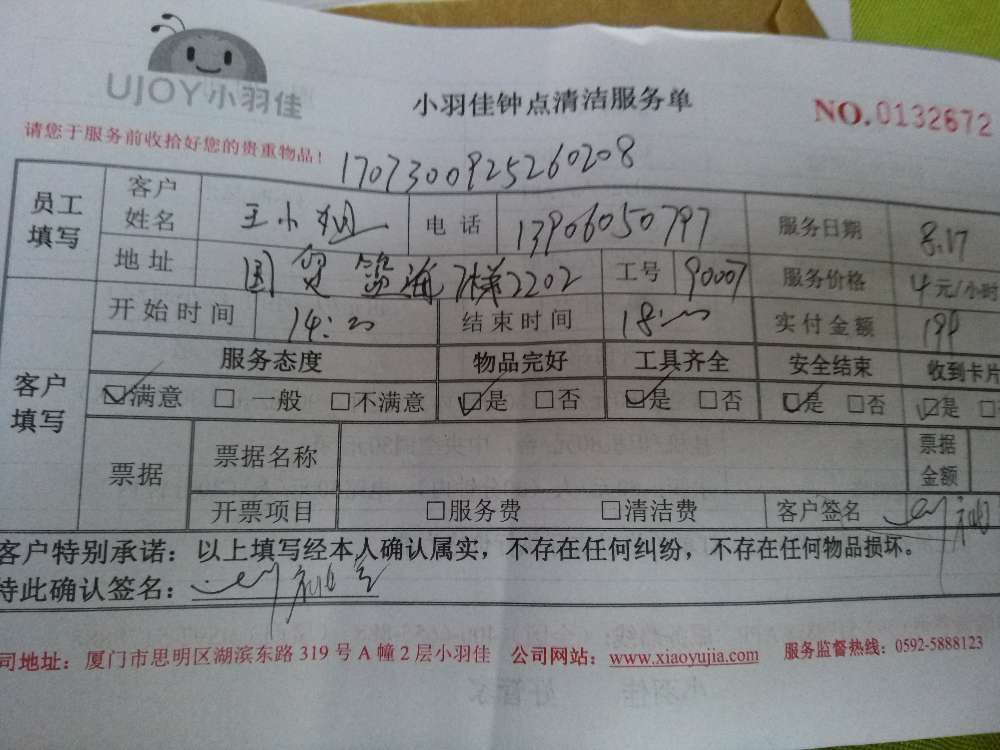 UJOY小羽佳
小羽佳钟点清洁服务单
NO.0132672
请您于服务前收拾好您的贵重物品！
1707300925260208
员工填写 客户姓名 王小姐 电话 13906050797 服务日期 8.17
地址 国贸蓝海 7梯2202 工号 90007 服务价格 4元/小时
客户填写 开始时间 14: 结束时间 18: 实付金额
服务态度 物品完好 工具齐全 安全结束 收到卡片
☑满意 □ 一般 □不满意 ☑是 □否 ☑是 □否 ☑是 □否 ☑是 □
票据 票据名称 票据金额
开票项目 □服务费 □清洁费 客户签名
客户特别承诺：以上填写经本人确认属实，不存在任何纠纷，不存在任何物品损坏。
特此确认签名：
司地址：厦门市思明区湖滨东路 319 号 A 幢 2 层小羽佳 公司网站：www.xiaoyujia.com 服务监督热线：0592-5888123